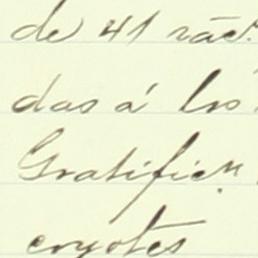 de 41 rac.
das á los
Gratificn
coyotes